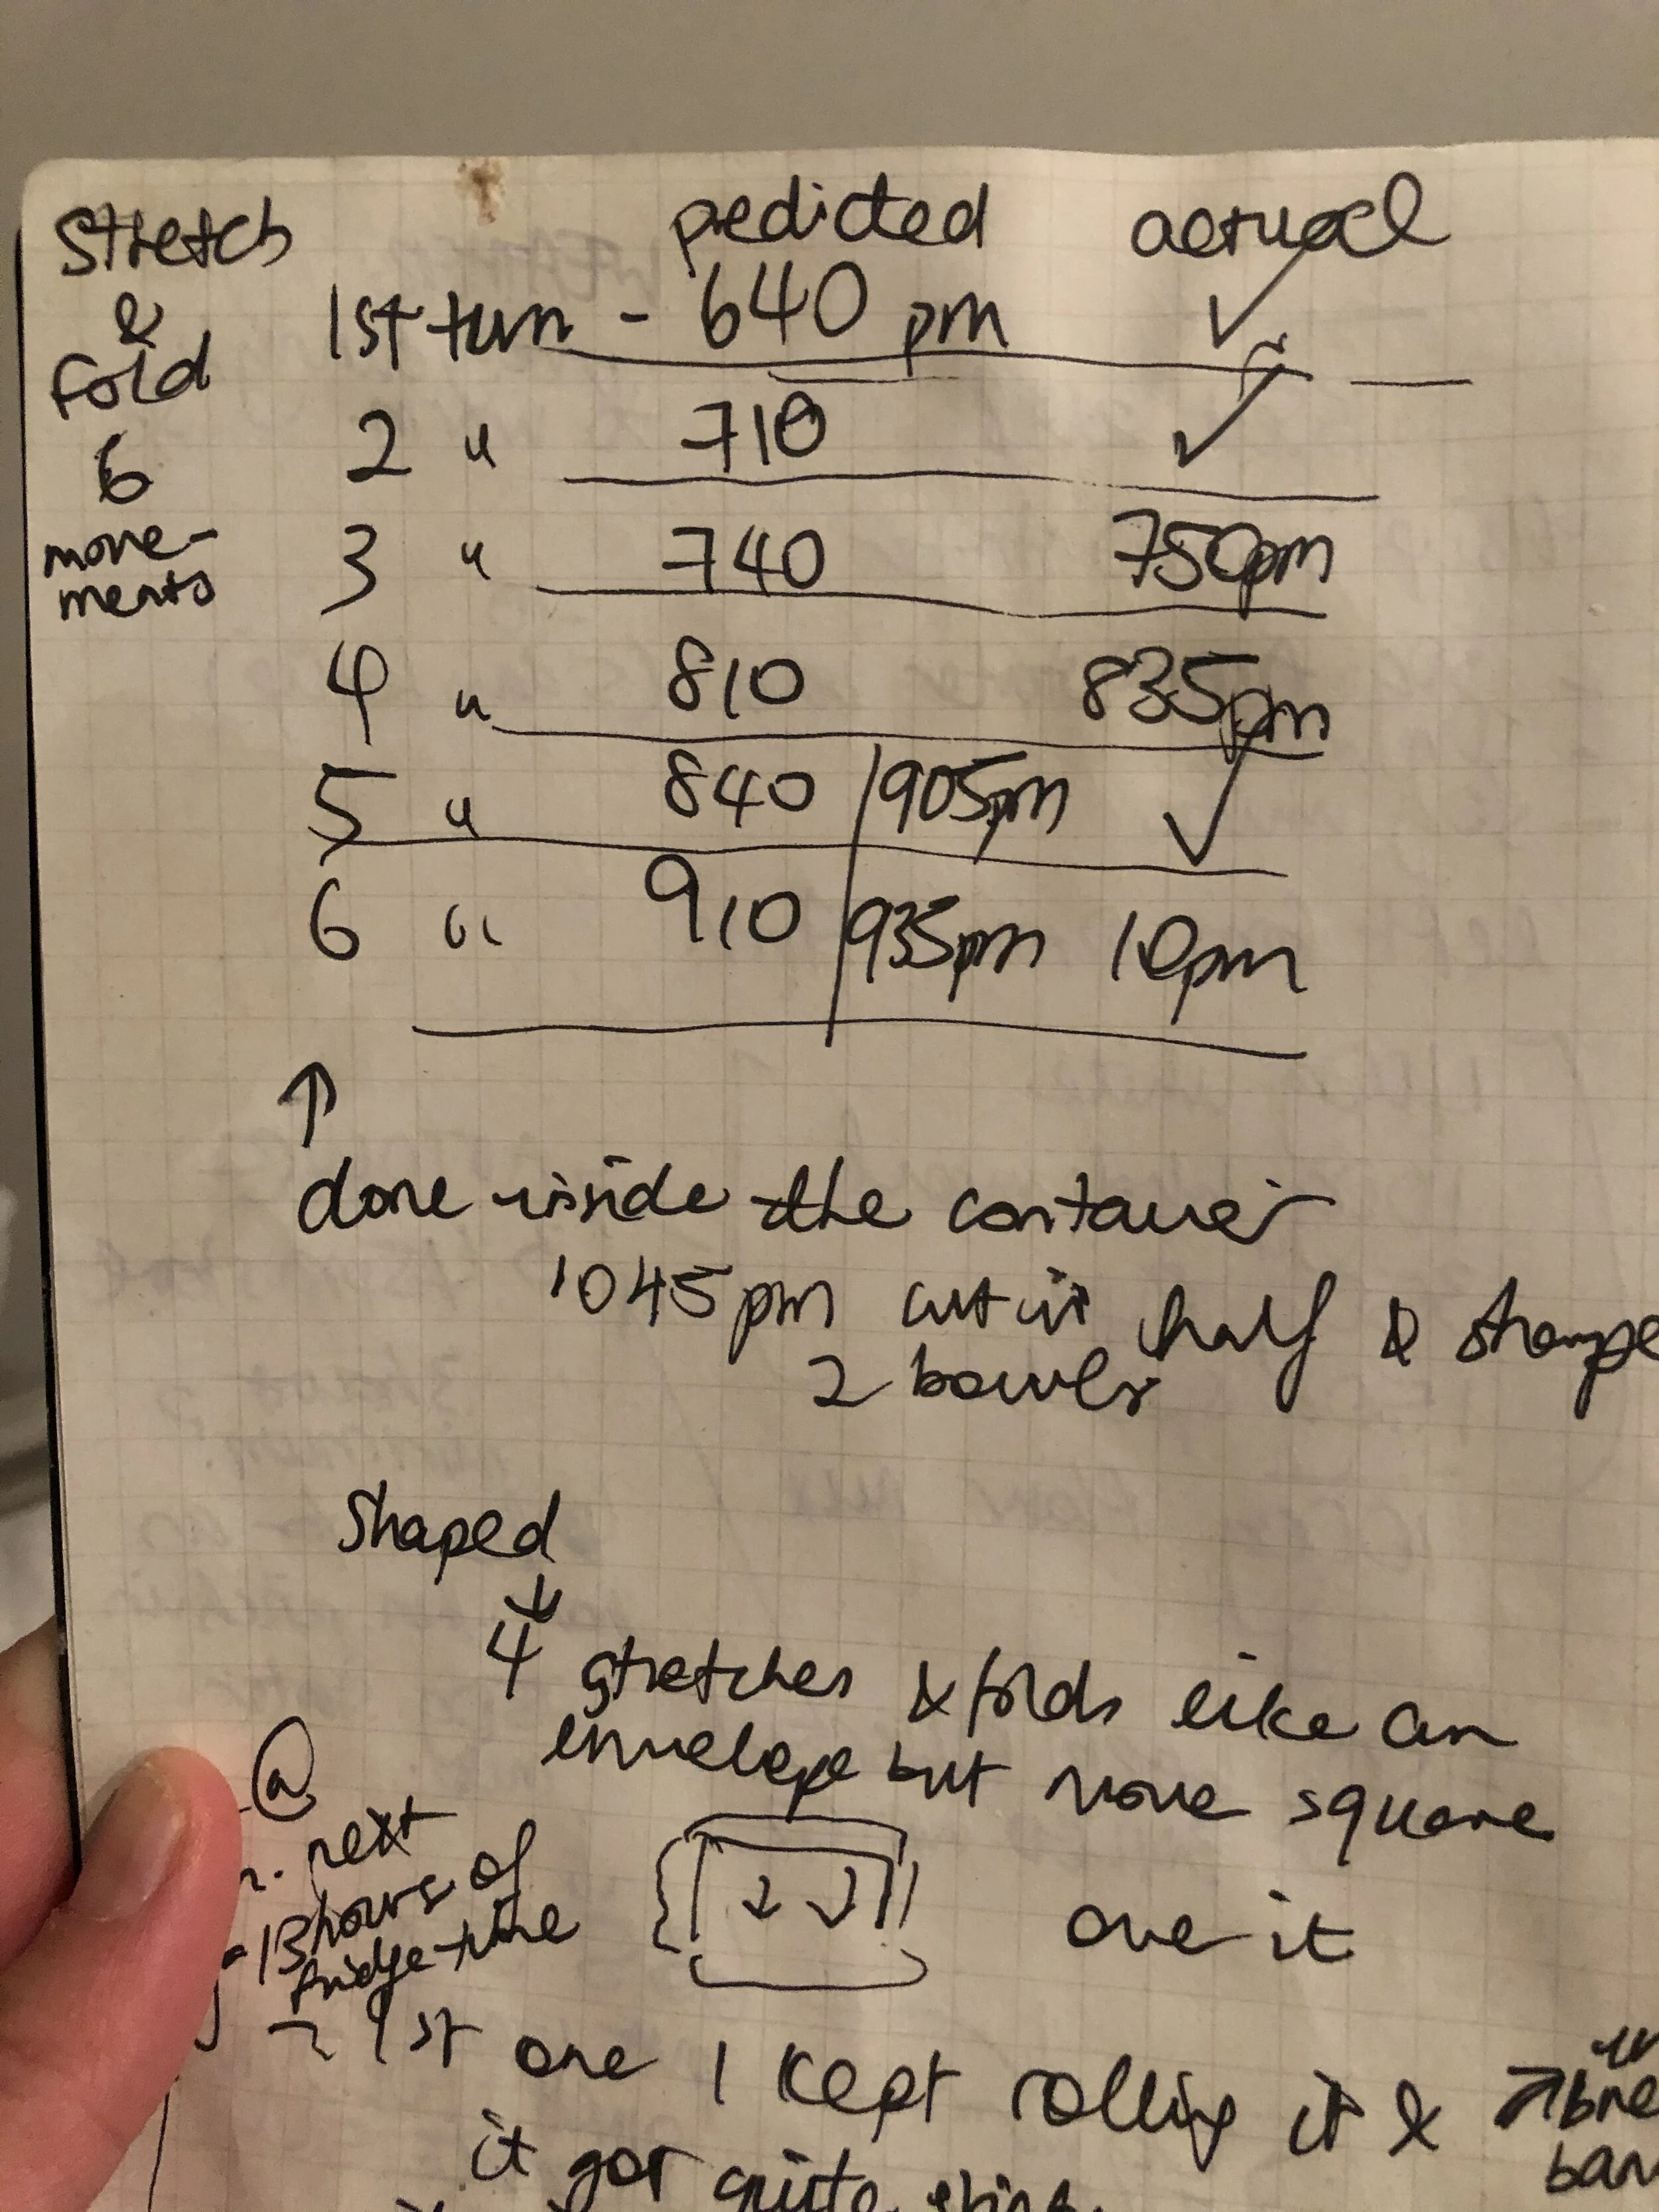 Stretch & fold 6 move-ments
predicted actual
1st turn - 640 pm ✓
2 " 710 ✓
3 " 740 750pm
4 " 810 835pm
5 " 840 / 905pm ✓
6 " 910 / 935pm 10pm
↑
done inside the container
1045pm cut in half & shape
2 bowls
Shaped
↓
4 stretches & folds like an
envelope but more square
@
next
13 hours of
fridge-time
↓ ↓
over it
1st one I kept rolling it &
it got quite